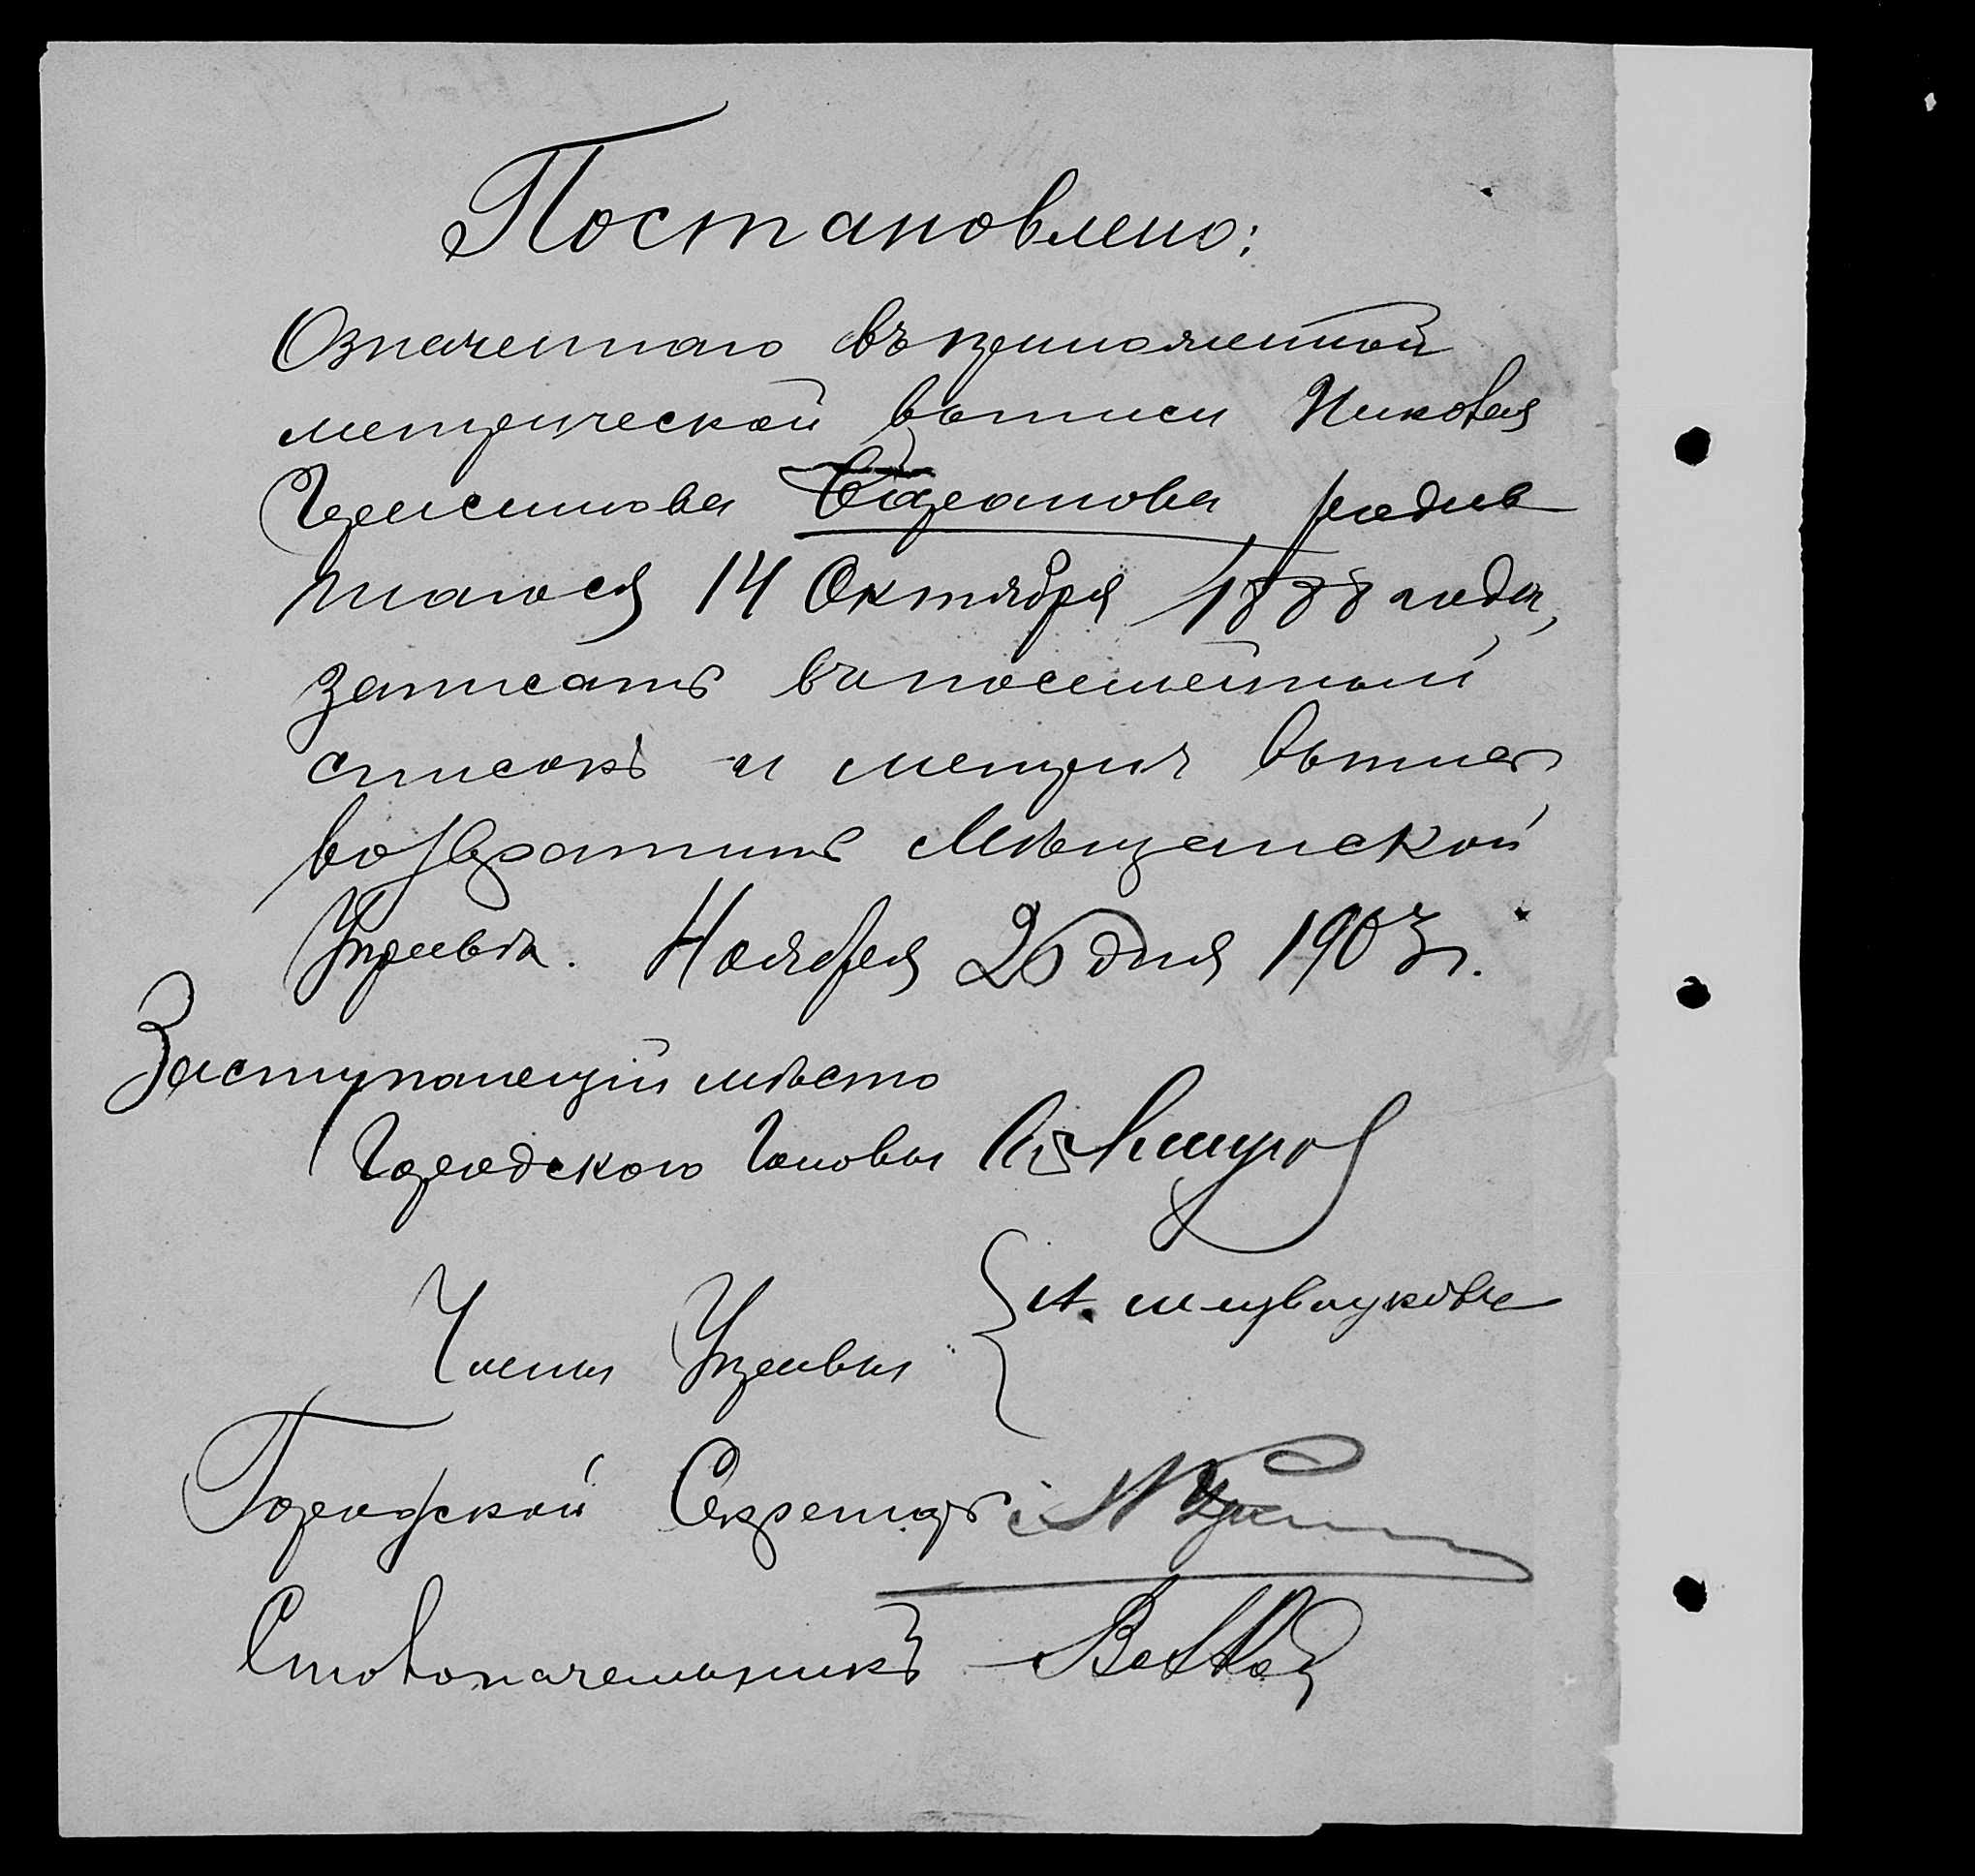 Постановлено:
Означеннаго въ приложенной
метрической выписи Николая
Герасимова Баранова родив
шагося 14 Октября 1888 года,
записать въ посемейный
списокъ и метрич. выпись
возвратить Мѣщанской
Управѣ. Ноября 26 дня 1903 г.
Заступающій мѣсто
Городского Головы
Члены Управы
Городской Секретарь
Столоначальникъ